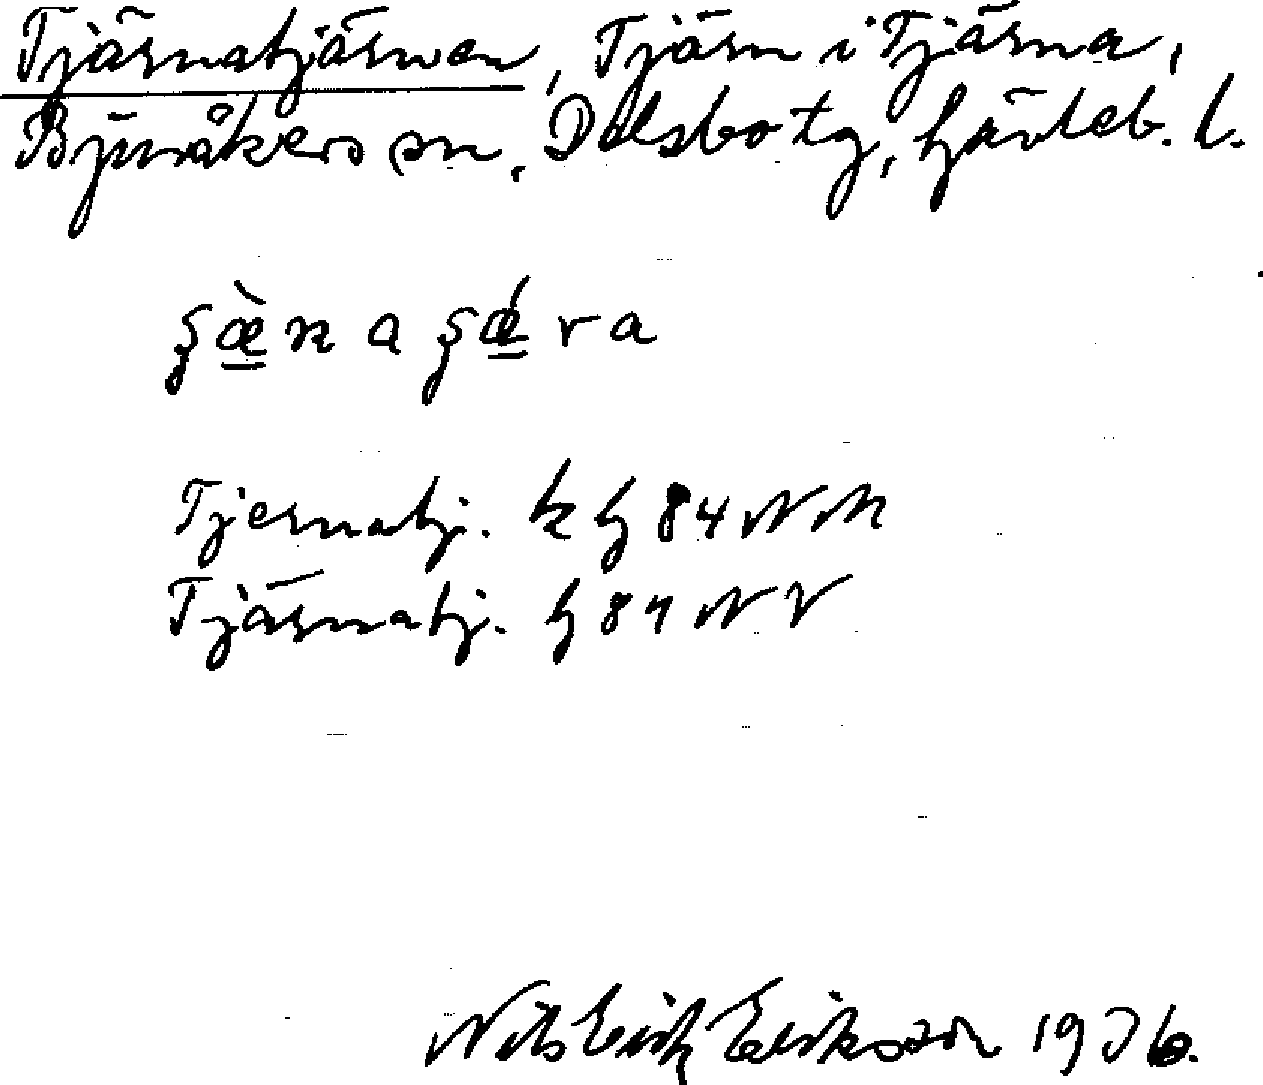 Tjärnatjärnen, Tjärn i Tjärna,
Bjuråkers sn, Delsbo tg, Gävleb. l.
ʂæ̀n a ʂǽ r a
Tjernatj. k g 84 NM
Tjärnatj. g 84 NV
Nils Erik Eriksson 1936.